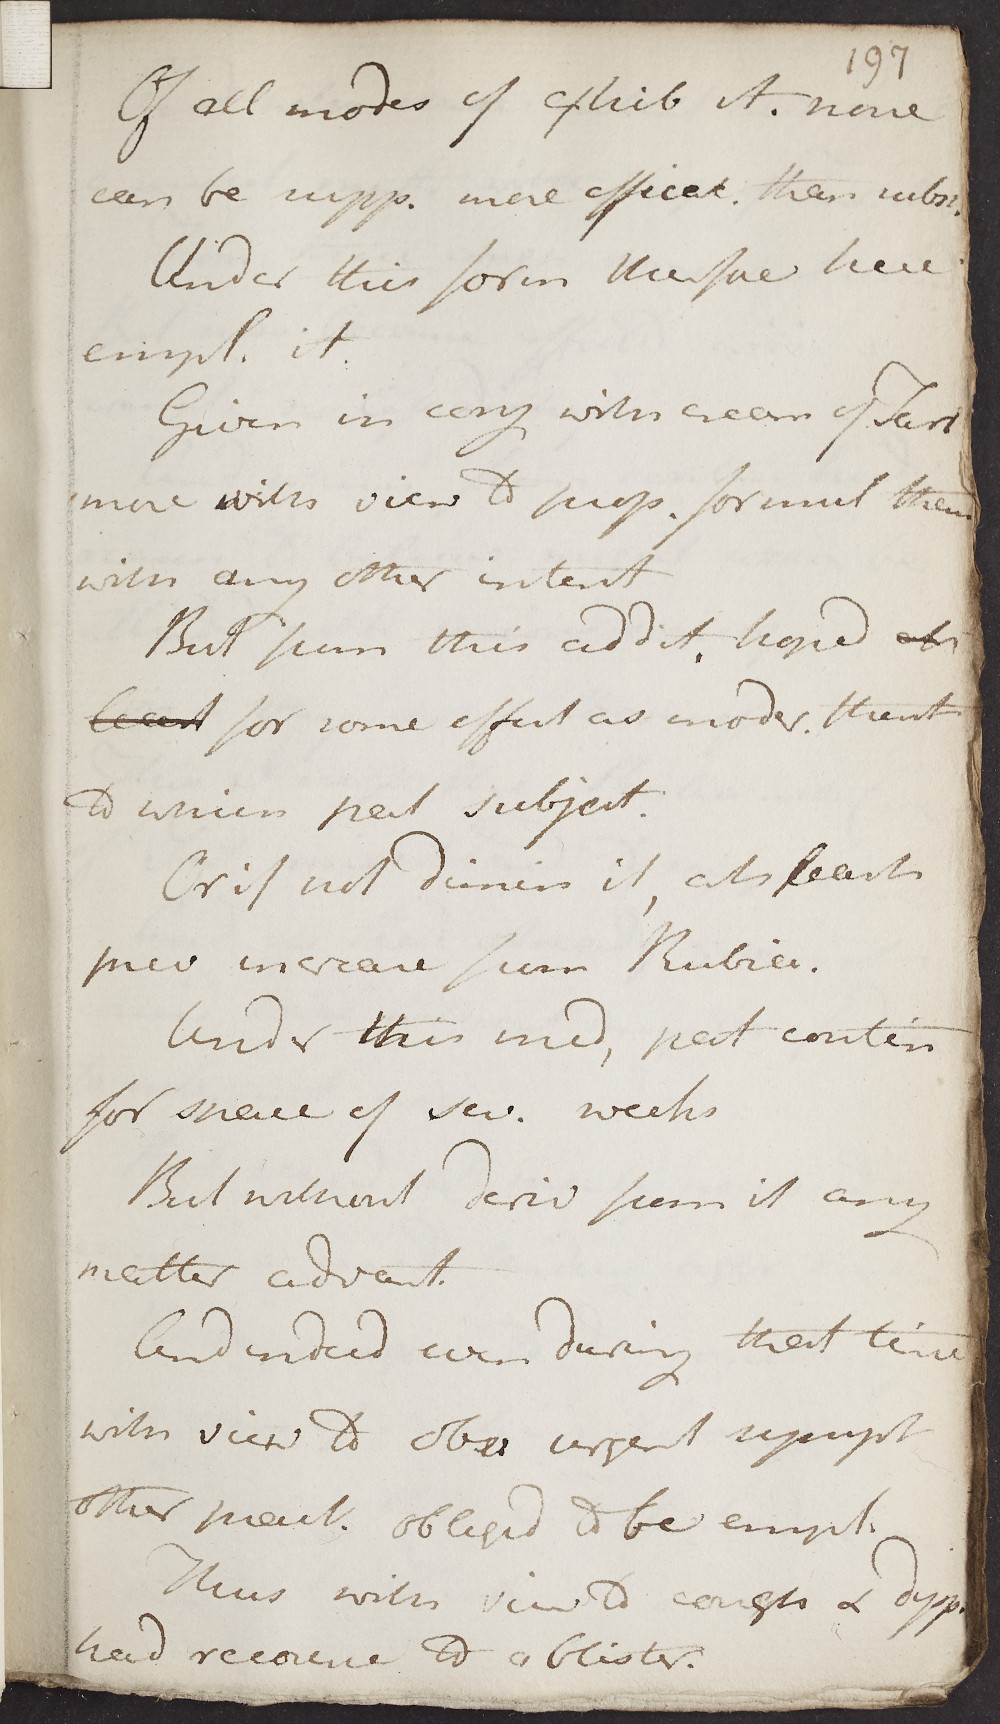 197
Of all modes of exhib it. none
can be supp. more efficac. than subst.
Under this form therefore here
empl. it.
Given in conj with cream of Tart
more with view to prop. formul than
with any other intent
But from this addit. hoped at
least for some effect as moder. thirst
to which pat subject.
Or if not dimin it, at least
prev increase from Rubia.
Under this med, pat contin
for space of sev. weeks
But without deriv from it any
matter advant.
And indeed even during that time
with view to obv urgent sympt
other pract. obliged to be empl.
Thus with view to cough & dysp.
had recourse to a blister.